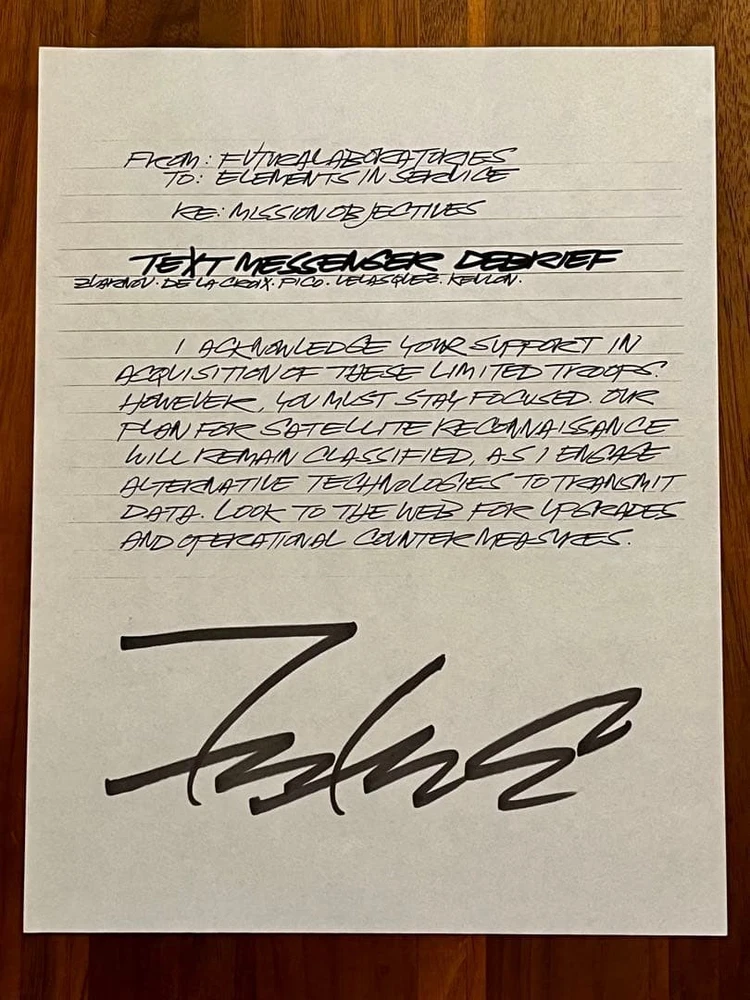 FROM: FUTURALABORATORIES
TO: ELEMENTS IN SERVICE
RE: MISSION OBJECTIVES
TEXT MESSENGER DEBRIEF
ZLARNOV. DE LA CROIX. PICO. VELASQUEZ. KENLON.
I ACKNOWLEDGE YOUR SUPPORT IN
ACQUISITION OF THESE LIMITED TROOPS.
HOWEVER, YOU MUST STAY FOCUSED. OUR
PLAN FOR SATELLITE RECONNAISSANCE
WILL REMAIN CLASSIFIED, AS I ENGAGE
ALTERNATIVE TECHNOLOGIES TO TRANSMIT
DATA. LOOK TO THE WEB FOR UPGRADES
AND OPERATIONAL COUNTER MEASURES.
Futura